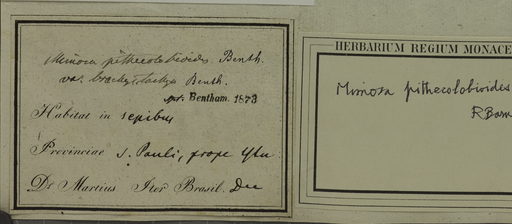 Mimosa pithecolobioides Benth.
var. brachystachya Benth.
det. Bentham. 1873
Habitat in sepibus
Provinciae S. Pauli, prope Ytu
Dr Martius Iter Brasil. Dec
HERBARIUM REGIUM MONACE
Mimosa pithecolobioides
R Barn